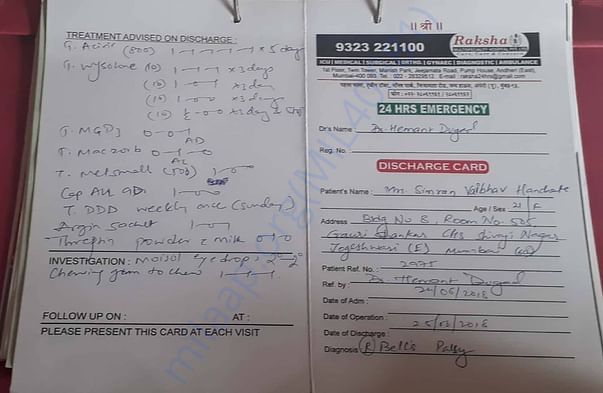 TREATMENT ADVISED ON DISCHARGE :
T. Acivir (800) 1-1-1-1-1 x 5 days
T. Wysolone (10) 1-1-1 x 3 days
(10) 1-0-1 x 3 day
(10) 1-0-0 x 3 days
(10) ½-0-0 x 3 day & STOP
0-0-1
AD
0-1-0
1-0-0
Cap All 9D 1-0-0
T. DDD weekly once (Sunday)
Argin Sachet 1-0-1
Threptin powder c milk 0-1-0
INVESTIGATION : Moisol eye drop 2°-2°
Chewing gum to chew 1-1-1
FOLLOW UP ON : AT :
PLEASE PRESENT THIS CARD AT EACH VISIT
॥ श्री ॥
9323 221100
Raksha
MULTISPECIALITY HOSPITAL PVT. LTD.
ICU | MEDICAL | SURGICAL | ORTHO | GYNAEC | DIAGNOSTIC | AMBULANCE
1st Floor, Twin Tower, Manish Park, Jeejamata Road, Pump House, Andheri (East),
Mumbai-400 093. Tel.: 022 - 28329512 E-mail : raksha24hrs@gmail.com
24 HRS EMERGENCY
Dr's Name : Dr. Hemant Dugad
Reg. No. :
DISCHARGE CARD
Patient's Name : Mrs. Simran Vaibhav Handate
Age / Sex : 21 / F
Address Bldg No 8, Room No 505
Gauri Shankar CHS Shivaji Nagar
Jogeshwari (E) Mumbai
Patient Ref. No. : 2975
Ref by : Dr. Hemant Dugad
Date of Adm : 24/06/2018
Date of Operation :
Date of Discharge : 25/06/2018
Diagnosis : (R) Bell's Palsy
milaap.org